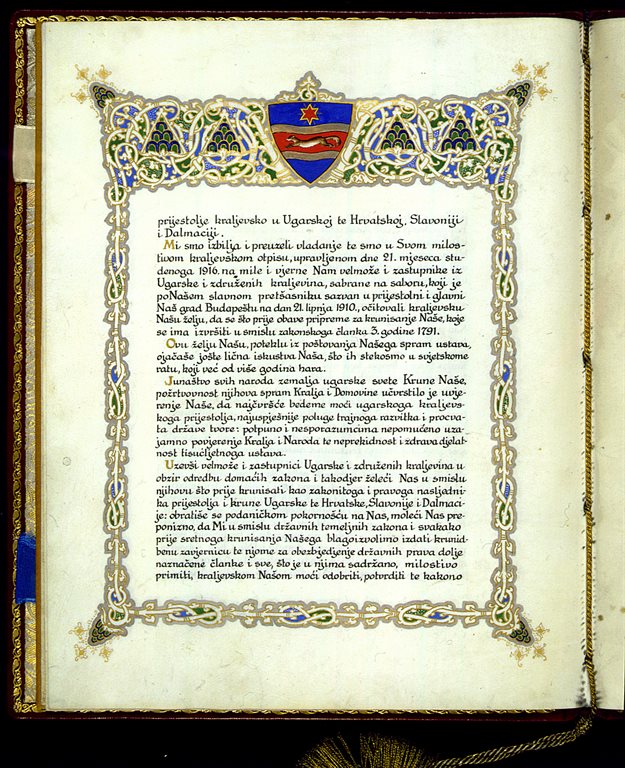 prijestolje kraljevsko u Ugarskoj te Hrvatskoj, Slavoniji
i Dalmaciji.
Mi smo izbilja i preuzeli vladanje te smo u Svom milos-
tivom kraljevskom otpisu, upravljenom dne 21. mjeseca stu-
denoga 1916. na mile i vjerne Nam velmože i zastupnike iz
Ugarske i združenih kraljevina, sabrane na saboru, koji je
po Našem slavnom pretšasniku sazvan u prijestolni i glavni
Naš grad Budapeštu na dan 21. lipnja 1910., očitovali kraljevsku
Našu želju, da se što prije obave pripreme za krunisanje Naše, koje
se ima izvršiti u smislu zakonskoga članka 3. godine 1791.
Ovu želju Našu, poteklu iz poštovanja Našega spram ustava,
ojačaše jošte lična iskustva Naša, što ih stekosmo u svjetskome
ratu, koji već od više godina hara.
Junaštvo svih naroda zemalja ugarske svete Krune Naše,
požrtvovnost njihova spram Kralja i Domovine učvrstilo je uvje-
renje Naše, da najčvršće bedeme moći ugarskoga kraljevs-
koga prijestolja, najuspješnije poluge trajnoga razvitka i procva-
ta države tvore: potpuno i nesporazumcima nepomućeno uza-
jamno povjerenje Kralja i Naroda te neprekidnost i zdrava djelat-
nost tisućljetnoga ustava.
Uzevši velmože i zastupnici Ugarske i združenih kraljevina u
obzir odredbu domaćih zakona i takodjer želeći Nas u smislu
njihovu što prije krunisati kao zakonitoga i pravoga nasljedni-
ka prijestolja i krune Ugarske te Hrvatske, Slavonije i Dalmaci-
je: obratiše se podaničkom pokornošću na Nas, moleći Nas pre-
ponizno, da Mi u smislu državnih temeljnih zakona i svakako
prije sretnoga krunisanja Našega blagoizvolimo izdati krunid-
benu zavjernicu te njome za obezbjedjenje državnih prava dolje
naznačene članke i sve, što je u njima sadržano, milostivo
primiti, kraljevskom Našom moći odobriti, potvrditi te kakono